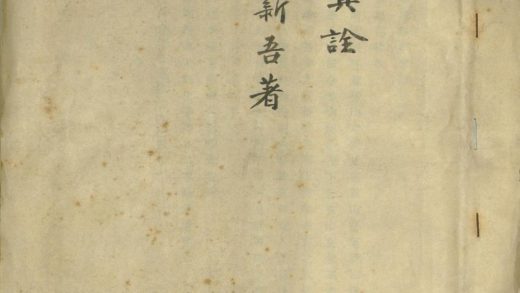 詮
新吾著